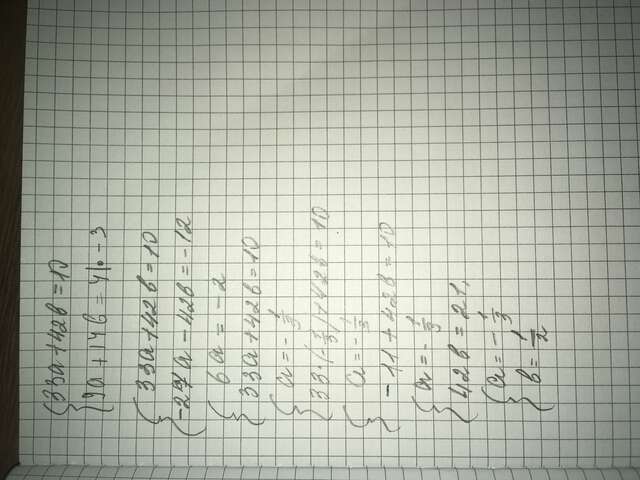 33a+42b=10
9a+14b=4|·-3
33a+42b=10
-27a-42b=-12
6a=-2
33a+42b=10
a=-1/3
33·(-1/3)+42b=10
a=-1/3
-11+42b=10
a=-1/3
42b=21,
a=-1/3
b=1/2